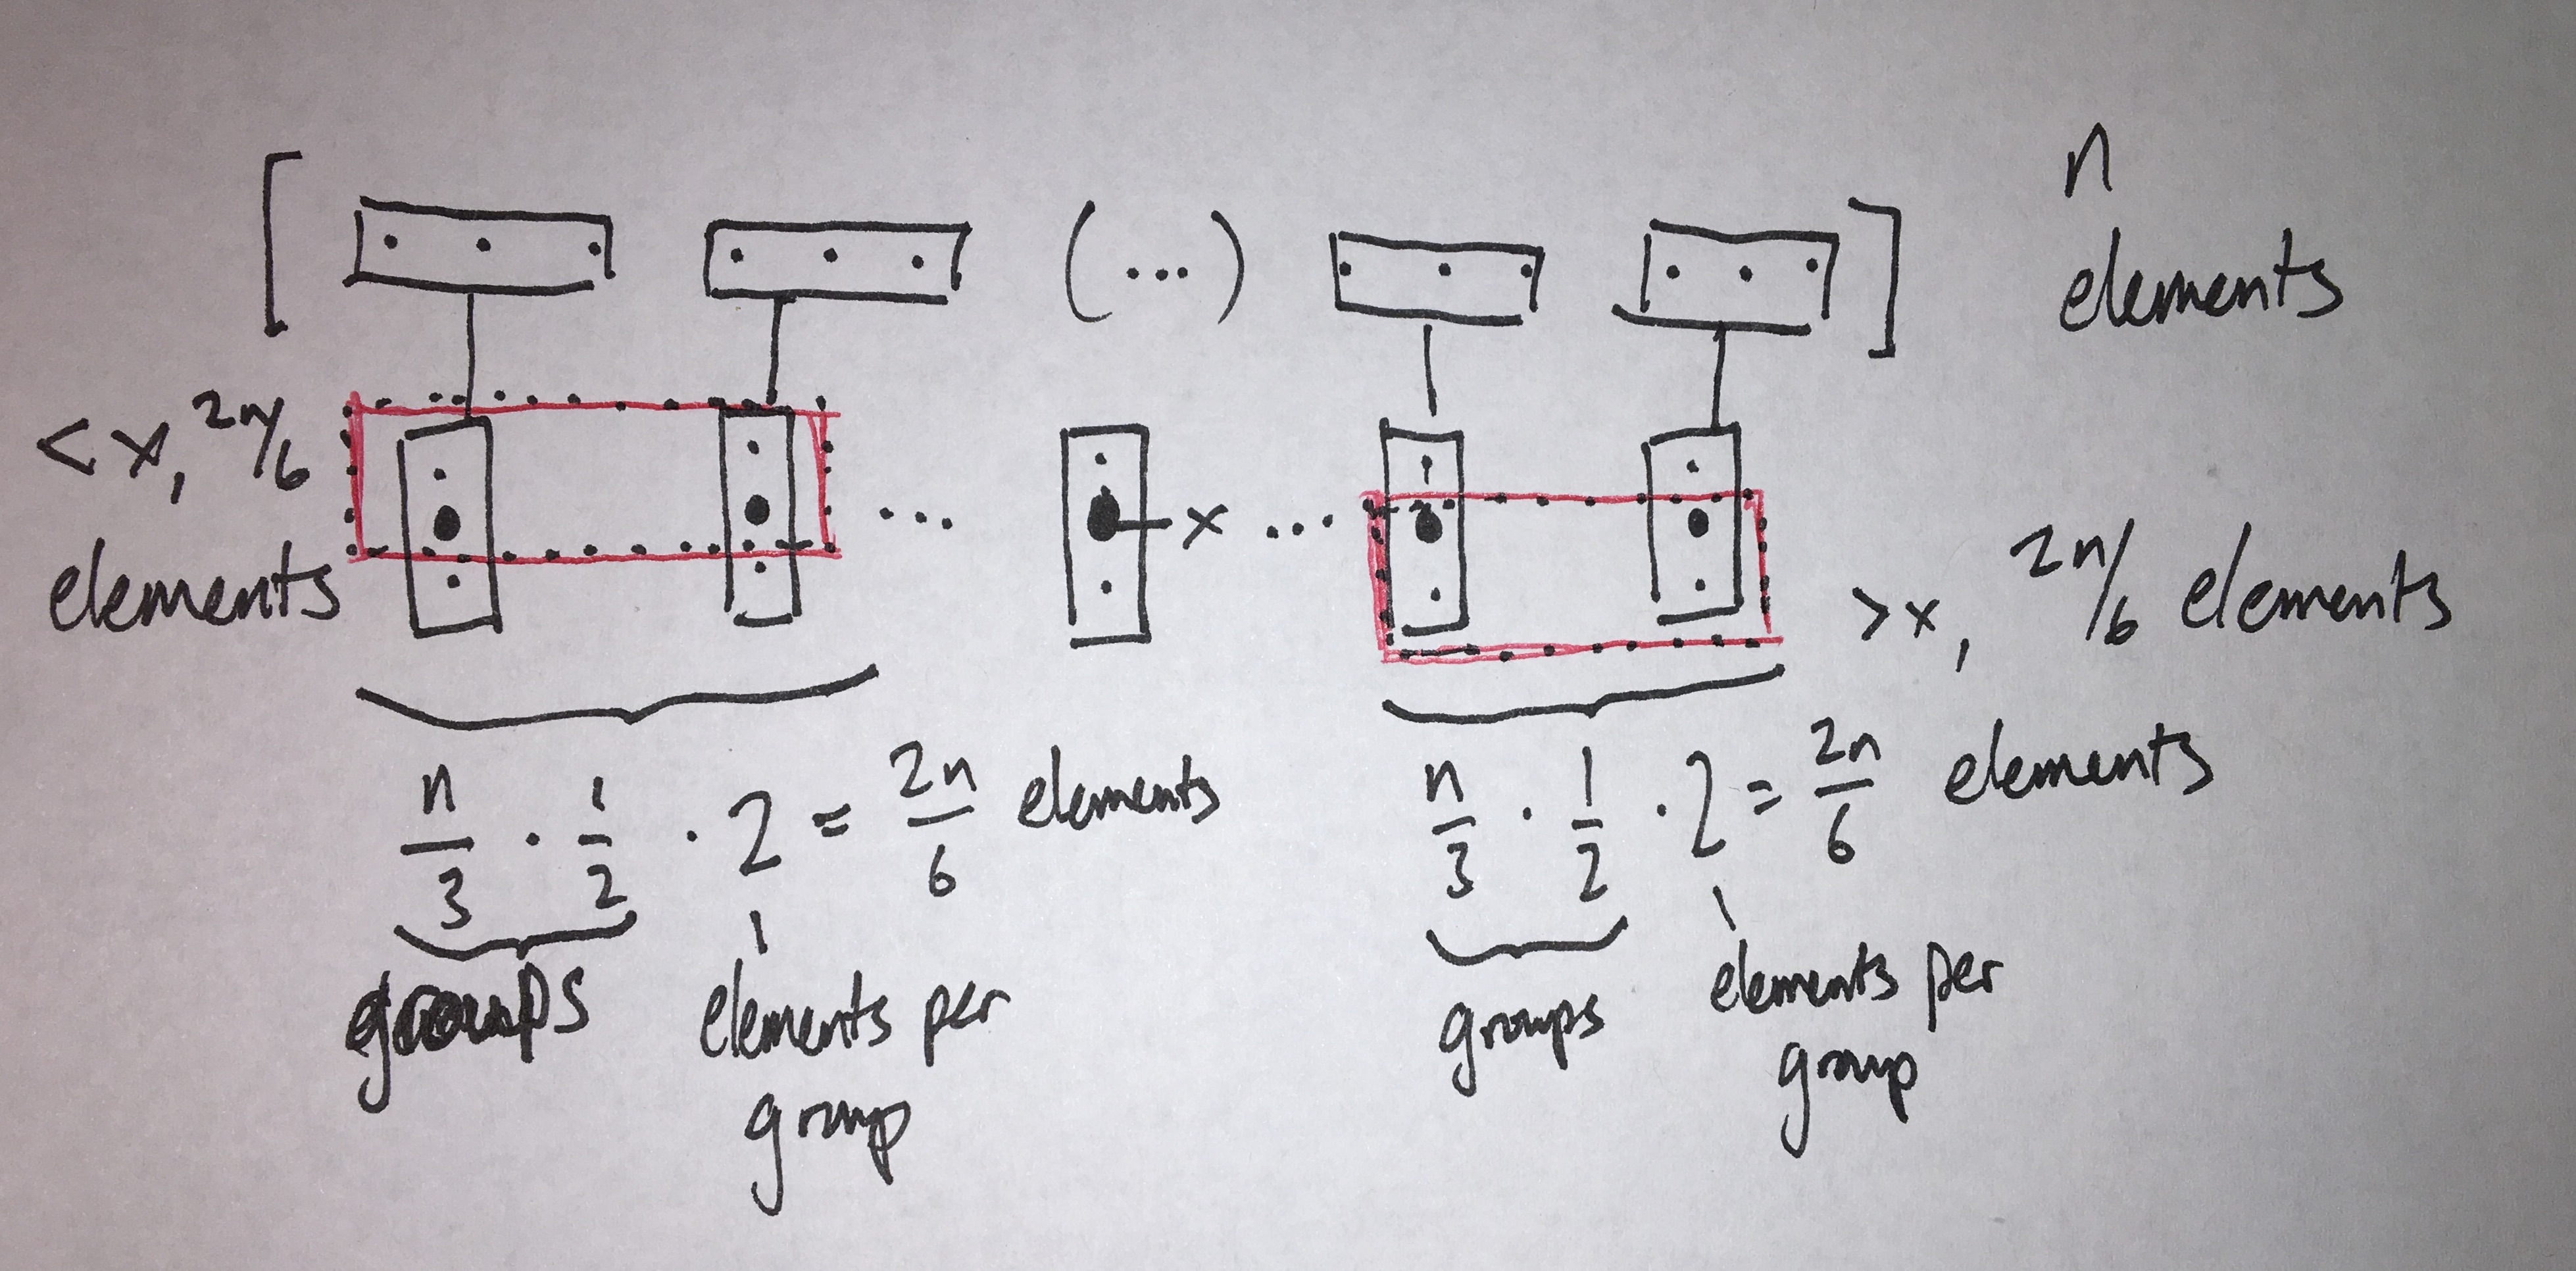 [ (...) ] n
elements
< x, 2n/6
elements
... x ...
> x, 2n/6 elements
n/3 · 1/2 · 2 = 2n/6 elements
groups
elements per
group
n/3 · 1/2 · 2 = 2n/6 elements
groups
elements per
group